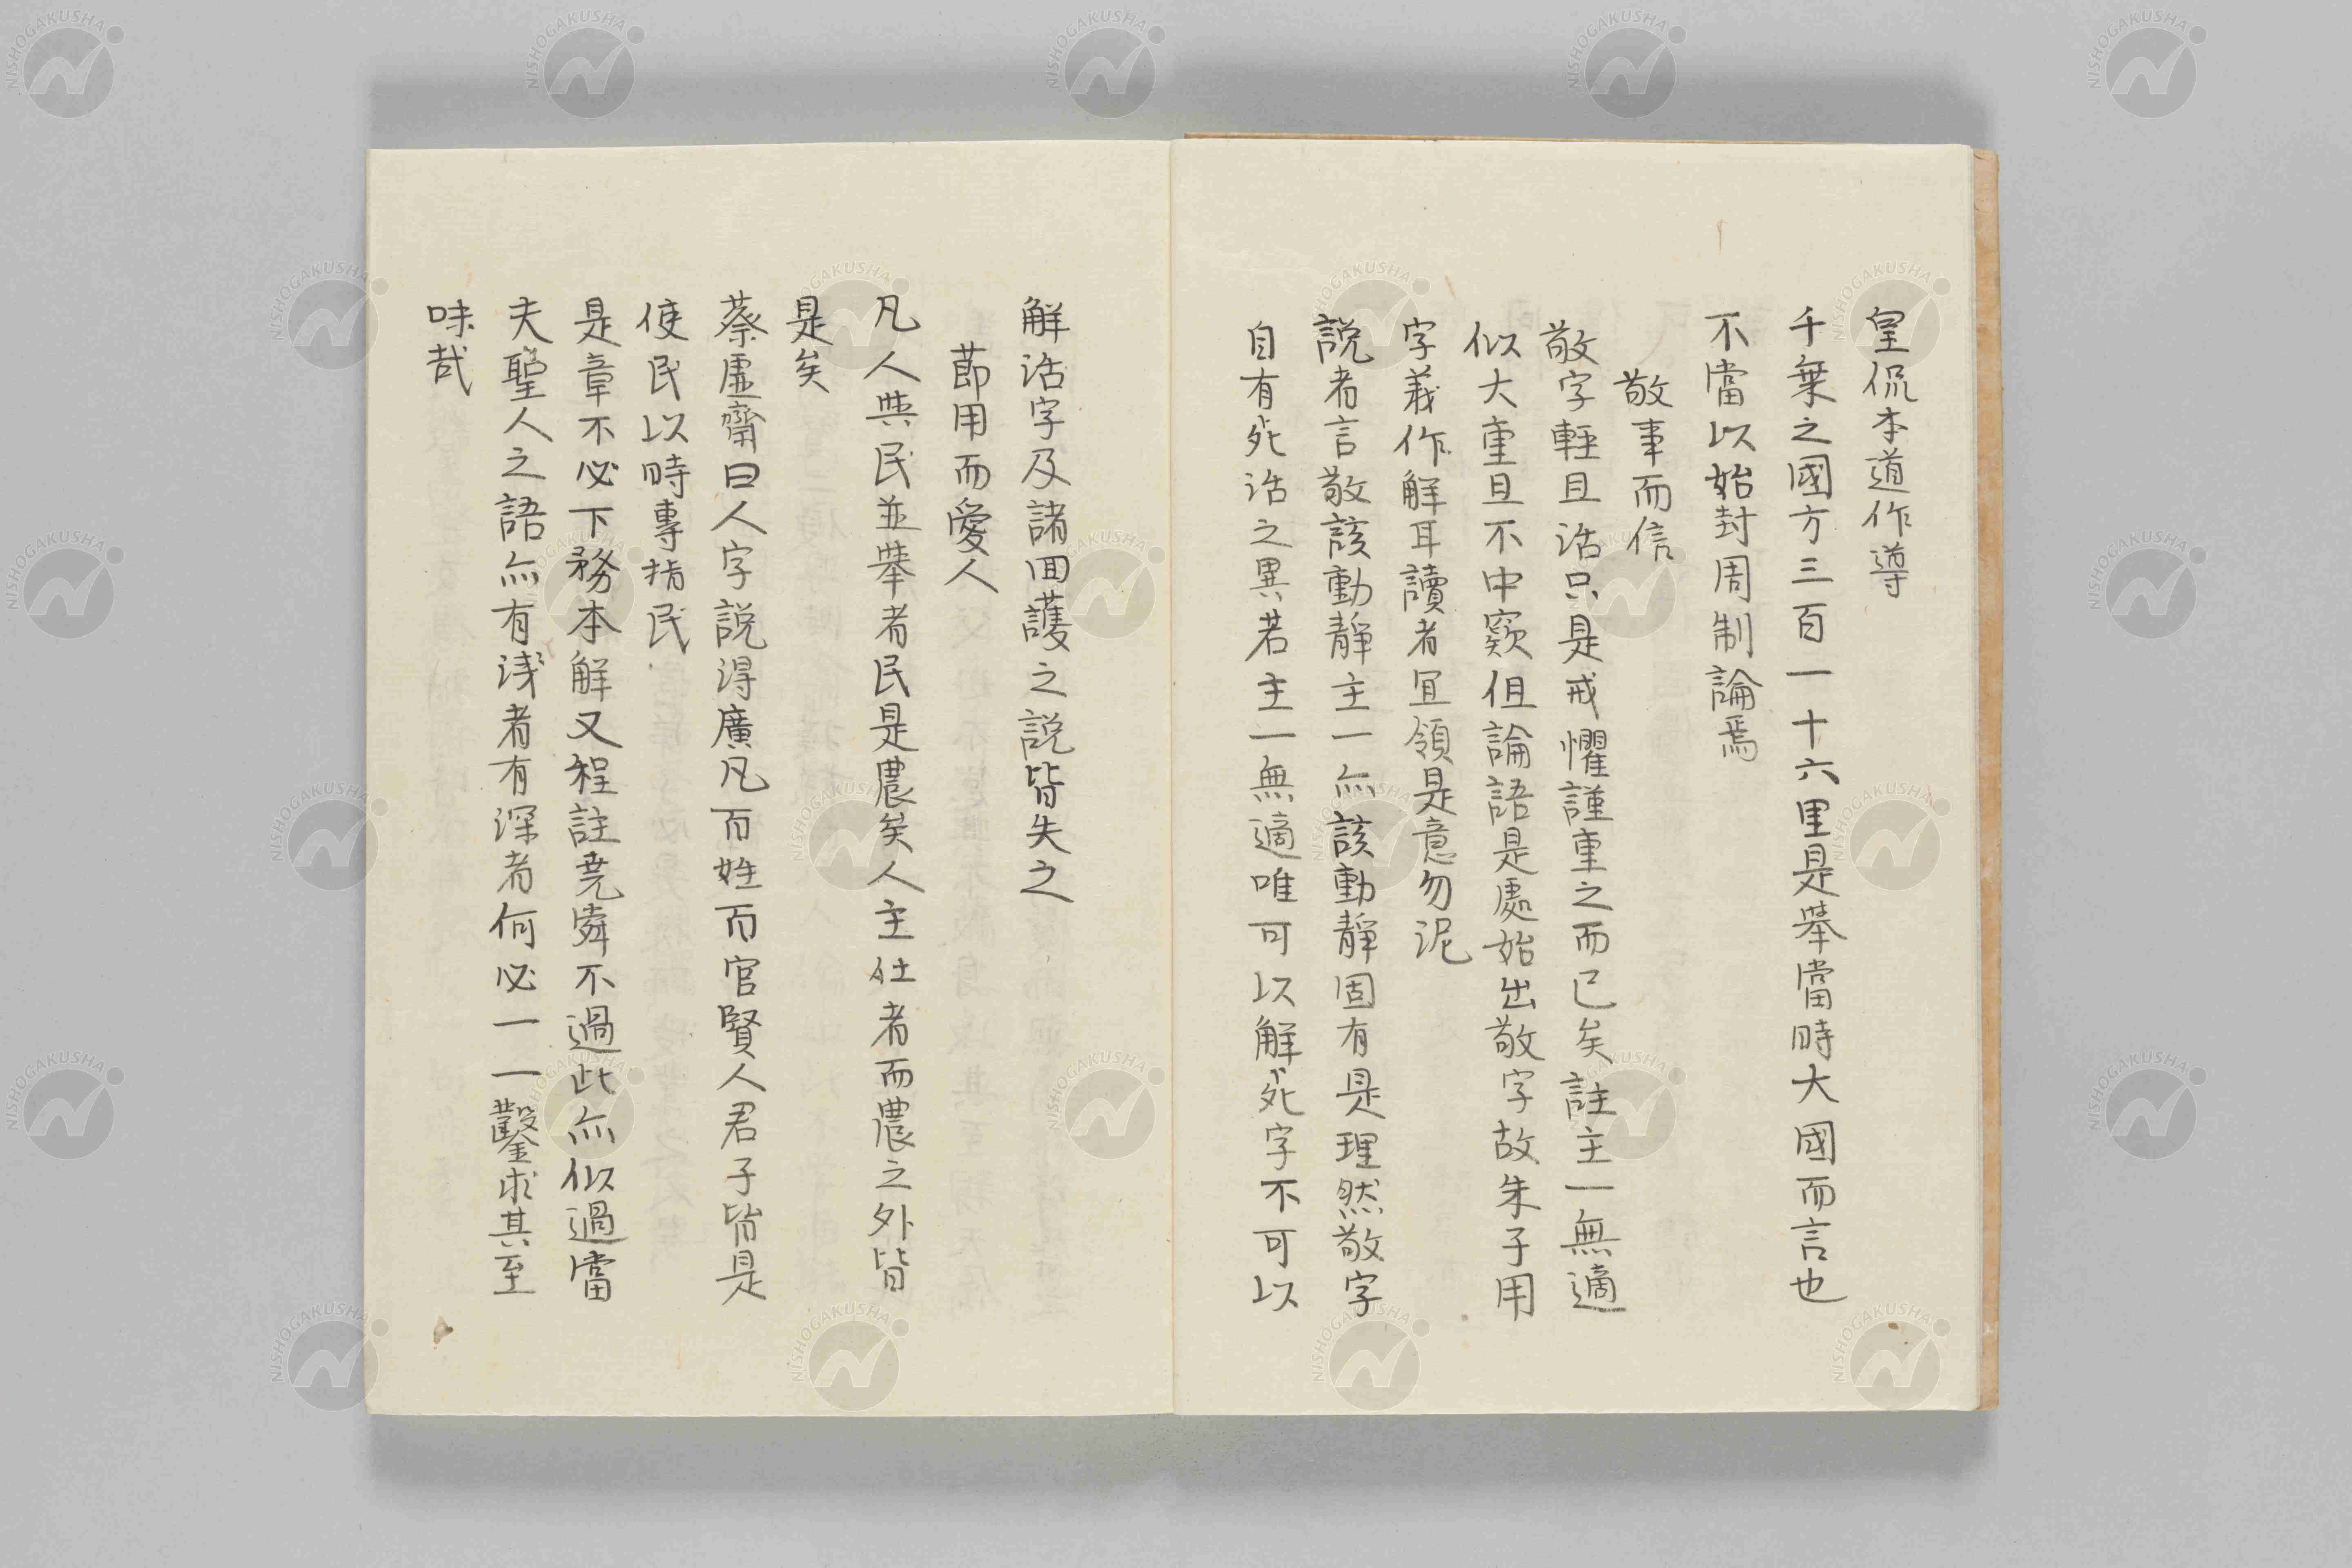 皇侃本道作導
千乗之國方三百一十六里是舉當時大國而言也
不當以始封周制論焉
敬事而信
敬字輕且活只是戒懼謹重之而已矣註主一無適
似大重且不中窾但論語是處始出敬字故朱子用
字義作解耳讀者宜領是意勿泥
説者言敬該動靜主一亦該動靜固有是理然敬字
自有死活之異若主一無適唯可以解死字不可以
解活字及諸回護之説皆失之
節用而愛人
凡人與民並舉者民是農矣人主仕者而農之外皆
是矣
蔡虛齋曰人字説得廣凡百姓百官賢人君子皆是
使民以時專指民
是章不必下務本解又程註堯舜不過此亦似過當
夫聖人之語亦有淺者有深者何必一一鑿求其至
味哉
NISHOGAKUSHA